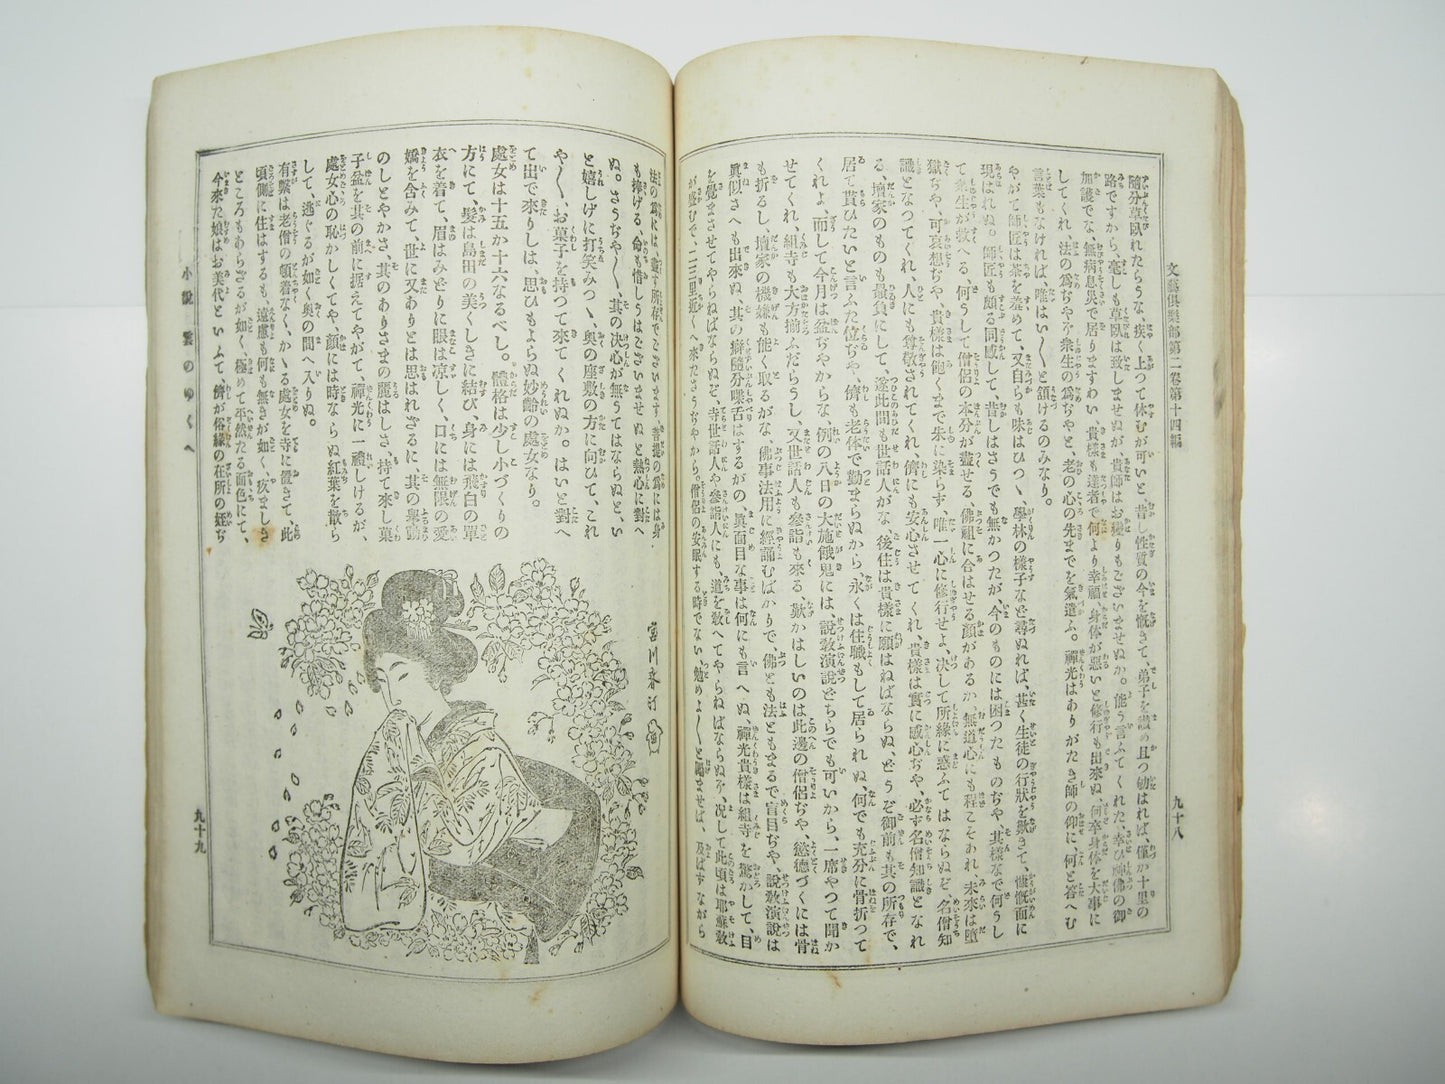 文藝倶樂部第二卷第十四編
九十八
隨分草臥れたらうな、疾く上つて休むが可いと、昔し性質の今を慨きて、弟子を識め且つ勉はれば、僅か十里の
路ですから、毫しも草臥は致しませぬが、貴師はお變りもございませぬか。能う言ふてくれた、幸ひ師佛の御
加護でな、無病息災で居りますわい、貴樣も達者で何より幸福、身体が惡いと修行も出來ぬ、何卒身体を大事に
してくれ、法の爲ぢや衆生の爲ぢやと、老の心の先までを氣遣ふ。禪光はありがたき師の仰に、何と答へむ
言葉もなければ、唯はい〳〵と頷けるのみなり。
やがて師匠は茶を薦めて、又自らも味はひつゝ、學林の樣子など尋ぬれば、甚く生徒の行狀を歎きて、慨慨面に
現はれぬ。師匠も頗る同感して、昔しはさうでも無かつたが、今のものには困つたものぢや、其樣なで何うし
て衆生が敎へる、何うして僧侶の本分が盡せる、佛祖に合はせる顏があるか、無道心にも程こそあれ、未來は墮
獄ぢや、可哀想ぢや、貴樣は飽くまで朱に染らず、唯一心に修行せよ、決して所緣に惑ふてはならぬぞ、名僧知
識となつてくれ、人にも尊敬されてくれ、儕にも安心させてくれ、貴樣は實に感心ぢや、必ず名僧知識となれ
る、壇家のものも最負にして、遂此間も世話人がな、後住は貴樣に願はねばならぬ、どうぞ御前も其の所存で、
居て貰ひたいと言ふた位ぢや、儕も老体で勤まらぬから、永くは住職もして居られぬ、何でも充分に骨折つて
くれよ、而して今月は盆ぢやからな、例の八日の大施餓鬼には、說敎演說どちらでも可いから、一席やつて聞か
せてくれ、組寺も大方揃ふだらうし、又世話人も參詣も來る、歎かはしいのは此邊の僧侶ぢや、慾德づくには骨
も折るし、壇家の機嫌も能く取るがな、佛事法用に經誦むばかりで、佛とも法ともまるで盲目ぢや、說敎演說は
眞似さへも出來ぬ、其の癖隨分喋舌はするがの、眞面目な事は何にも言へぬ、禪光貴樣は組寺を驚かして、目
を覺まさせてやらねばならぬぞ、寺世話人や參詣人にも、道を敎へてやらねばならぬぞ、况して此頃は耶蘇敎
が盛むで、二三里近くへ來たさうぢやから。僧侶の安眠する時でない、勉めよ〳〵と勵ませば、及ばずながら
法の爲には、盡す所存でございます、菩提の爲には身
も捧げる、命も惜しうはございませぬと、熱心に對へ
ぬ。さうぢや〳〵、其の決心が無うてはならぬと、い
と嬉しげに打笑みつゝ、奥の座敷の方に向ひて、これ
や〳〵、お菓子を持つて來てくれぬか。はいと對へ
て出で來りしは、思ひもよらぬ妙齡の處女なり。
處女は十五か十六なるべし。體格は少し小づくりの
方にて、髮は島田の美くしきに結び、身には飛白の單
衣を着て、眉はみどりに眼は凉しく、口には無限の愛
嬌を含みて、世に又ありとは思はれざるに、其の擧動
のしとやかさ、其のありさまの麗はしさ、持て來し菓
子盆を其の前に据えてやがて、禪光に一禮しけるが、
處女心の恥かしくてや、顏には時ならぬ紅葉を散ら
して、逃ぐるが如く奧の間へ入りぬ。
有繫は老僧の頓着なく、かゝる處女を寺に置きて、此
頃側に住はするも、遠慮も何も無きが如く、疚ましき
ところもあらざるが如く、極めて平然たる面色にて、
今來た娘はお美代といふて、儕が俗緣の在所の姪ぢ
小說 雲のゆくへ
九十九